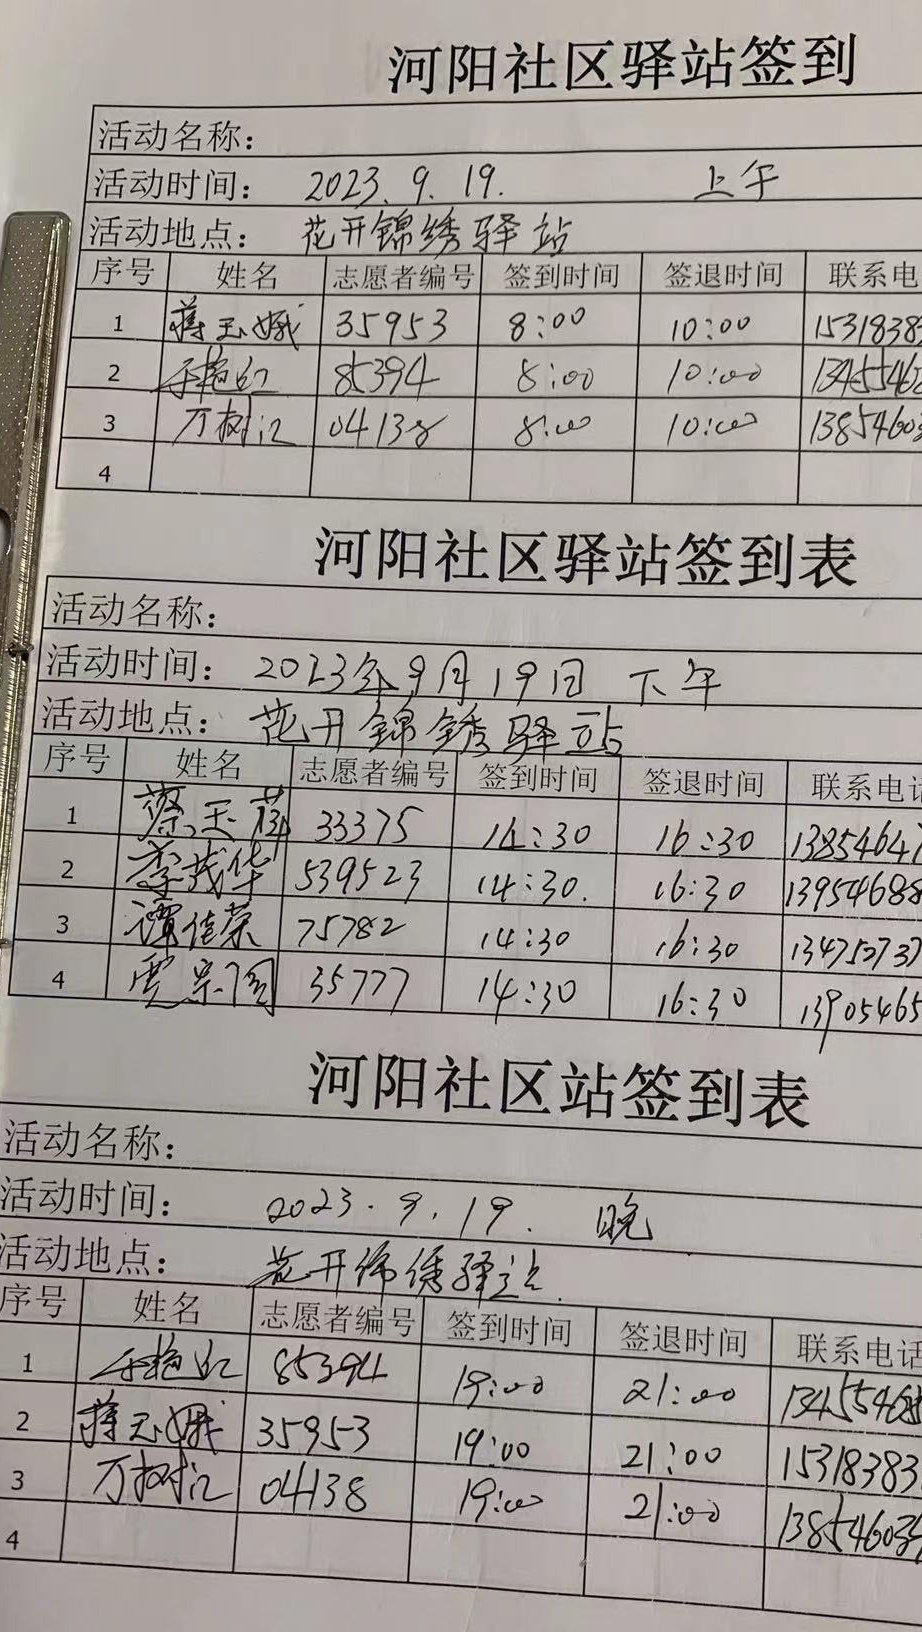 河阳社区驿站签到
活动名称：
活动时间： 2023.9.19. 上午
活动地点： 花开锦绣驿站
序号 姓名 志愿者编号 签到时间 签退时间 联系电
1 蒋玉娥 35953 8:00 10:00 15318383
2 85394 8:00 10:00 1345546
3 万树江 04138 8:00 10:00 13854603
4
河阳社区驿站签到表
活动名称：
活动时间： 2023年9月19日 下午
活动地点： 花开锦绣驿站
序号 姓名 志愿者编号 签到时间 签退时间 联系电话
1 蔡玉 33375 14:30 16:30 1385464
2 李茂华 539523 14:30. 16:30 13954688
3 谭佳荣 75782 14:30 16:30 134752737
4 贾宗国 35777 14:30 16:30 13905465
河阳社区站签到表
活动名称：
活动时间： 2023.9.19. 晚
活动地点： 花开锦绣驿站
序号 姓名 志愿者编号 签到时间 签退时间 联系电话
1 85394 19:00 21:00 13455468
2 蒋玉娥 35953 19:00 21:00 15318383
3 万树江 04138 19:00 21:00 13854603
4